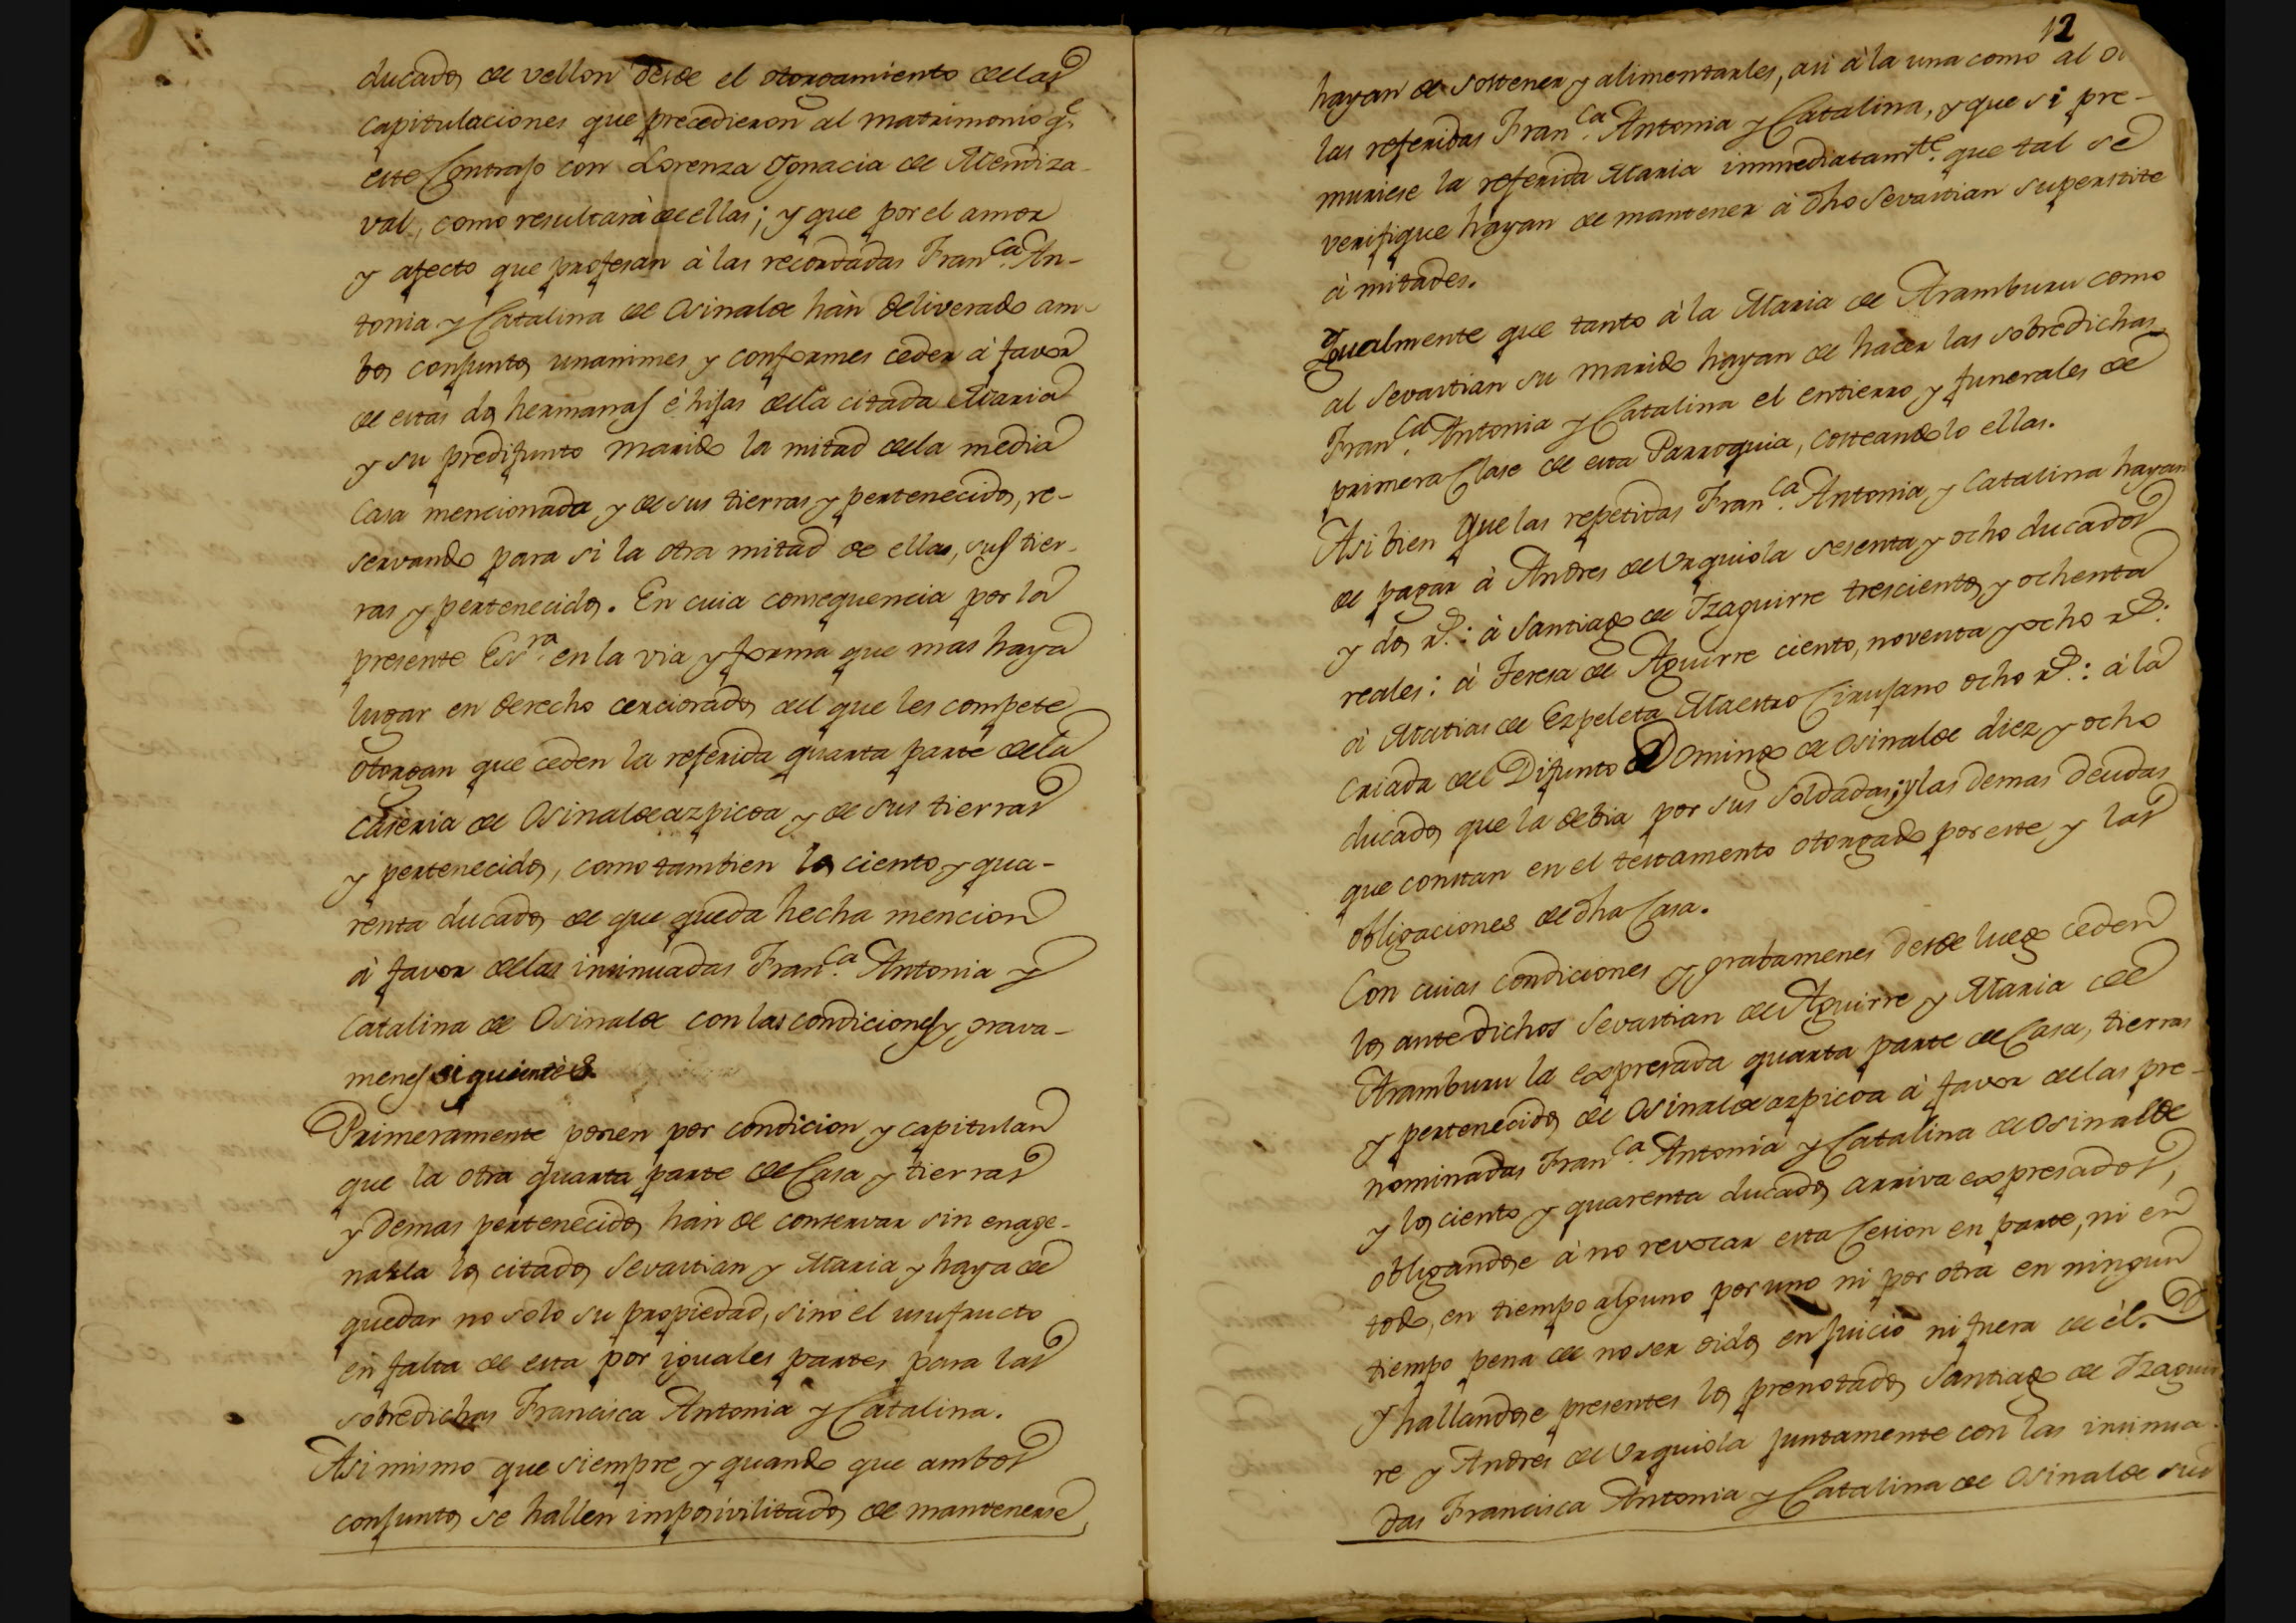 ducados de vellon desde el otorgamiento de las
capitulaciones que precedieron al matrimonio q.e
este Contrajo con Lorenza Ygnacia de Mendiza-
val, como resultarà de ellas; y que por el amor
y afecto que profesan à las recordadas Fran.ca An-
tonia y Catalina de Osinalde hàn deliverado am-
bos conjuntos unanimes y conformes ceder à favor
de estas dos hermanas é hijas de la citada Maria
y su predifunto marido la mitad de la media
Casa mencionada y de sus tierras y pertenecidos, re-
servando para si la otra mitad de ellas, sus tier-
ras y pertenecidos. En cuia consequencia por la
presente Es.ra en la via y forma que mas haya
lugar en derecho cerciorados del que les compete
otorgan que ceden la referida quarta parte de la
Caseria de Osinaldeazpicoa y de sus tierras
y pertenecidos, como tambien los ciento y qua-
renta ducados de que queda hecha mencion
à favor de las insinuadas Fran.ca Antonia y
Catalina de Osinalde con las condiciones y grava-
menes siguientes.
Primeramente ponen por condicion y capitulan
que la otra quarta parte de Casa y tierras
y demas pertenecidos hàn de conservar sin enage-
narla los citados Sevastian y Maria y haya de
quedar no solo su propiedad, sino el usufructo
en falta de esta por iguales partes para las
sobredichas Francisca Antonia y Catalina.
Asi mismo que siempre y quando que ambos
conjuntos se hallen imposivilitados de mantenerse,
12
hayan de sostener y alimentarles, asi à la una como al
las referidas Fran.ca Antonia y Catalina, y que si pre-
muriese la referida Maria immediatam.te que tal se
verifique hayan de mantener à dho Sevastian superstite
à mitades.
Ygualmente que tanto à la Maria de Aramburu como
al Sevastian su marido hayan de hacer las sobredichas
Fran.ca Antonia y Catalina el entierro y funerales de
primera Clase de esta Parroquia, costeandolo ellas.
Asi bien que las repetidas Fran.ca Antonia, y Catalina hayan
de pagar à Andres de Urquiola sesenta y ocho ducados
y dos r.s: à Santiago de Yzaguirre trescientos y ochenta
reales: à Teresa de Aguirre ciento, noventa y ocho r.s:
à Matias de Ezpeleta Maestro Cirujano ocho r.s: à la
Criada del Difunto Domingo de Osinalde diez y ocho
ducados que la debia por sus soldadas; y las demas deudas
que constan en el testamento otorgado por este y las
obligaciones de dha Casa.
Con cuias condiciones y grabamenes desde luego ceden
los antedichos Sevastian de Aguirre y Maria de
Aramburu la expresada quarta parte de Casa, tierras
y pertenecidos de Osinaldeazpicoa à favor de las pre-
nominadas Fran.ca Antonia y Catalina de Osinalde
y los ciento y quarenta ducados arriva expresados,
obligandose à no revocar esta Cesion en parte, ni en
todo, en tiempo alguno por uno ni por otra en ningun
tiempo pena de no ser oidos en juicio ni fuera de èl.
y hallandose presentes los prenotados Santiago de Yzaguir
re y Andres de Urquiola juntamente con las insinua-
das Francisca Antonia y Catalina de Osinalde sus